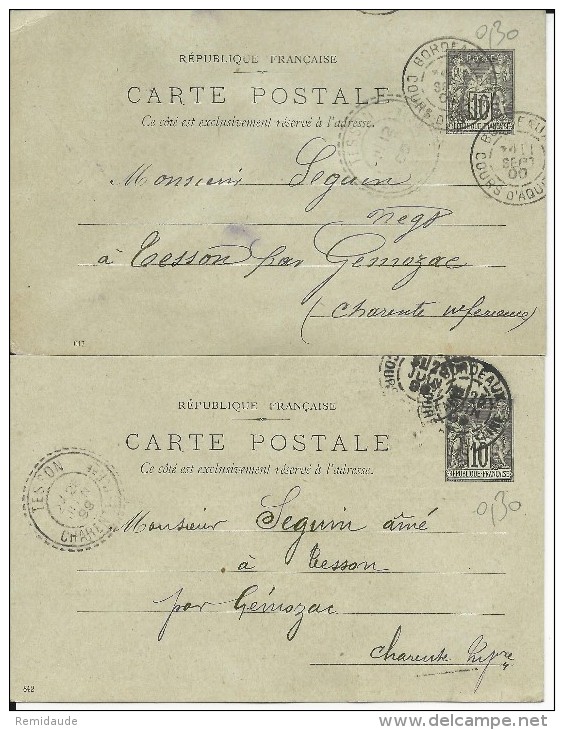 0,30
RÉPUBLIQUE FRANÇAISE
CARTE POSTALE
Ce côté est exclusivement réservé à l'adresse.
BORDEAUX
SEPT
00
COURS D'AQUI
10
Monsieur Seguin
Negt
à Tesson par Gemozac
(Charente Inferieure)
RÉPUBLIQUE FRANÇAISE
CARTE POSTALE
Ce côté est exclusivement réservé à l'adresse.
BORDEAUX
JUIN
10
0,30
TESSON
99
CHARE
Monsieur Seguin aîné
à Tesson
par Gémozac
Charente Infre
842
Remidaude
www.delcampe.net